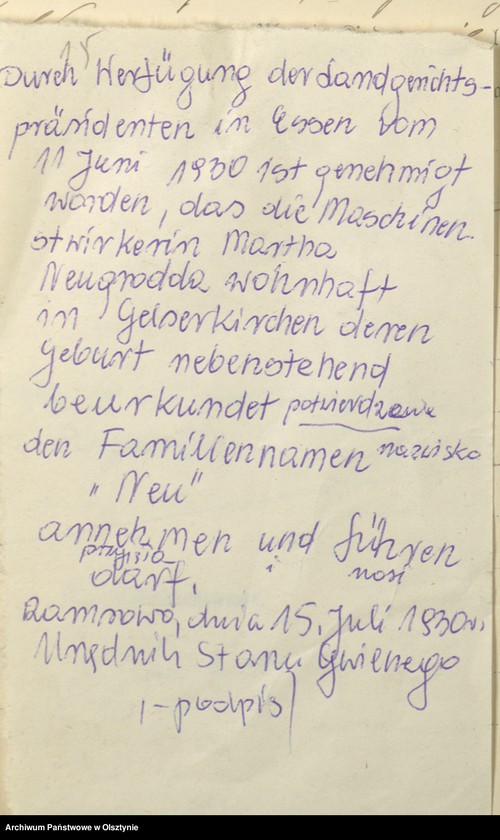 15
Durch Verfügung der Landgerichts-
präsidenten in Essen vom
11 Juni 1930 ist genehmigt
worden, das die Maschinen.
stwirkerin Martha
Neugrodda wohnhaft
in Gelserkirchen deren
Geburt nebenstehend
beurkundet potwierdzone
den Famillennamen nazwisko
"Neu"
annehmen und führen
przyjęła i nosi
darf.
Ramsowo, dnia 15. Juli 1930r.
Urzędnik Stanu Cywilnego
/-podpis/
Archiwum Państwowe w Olsztynie